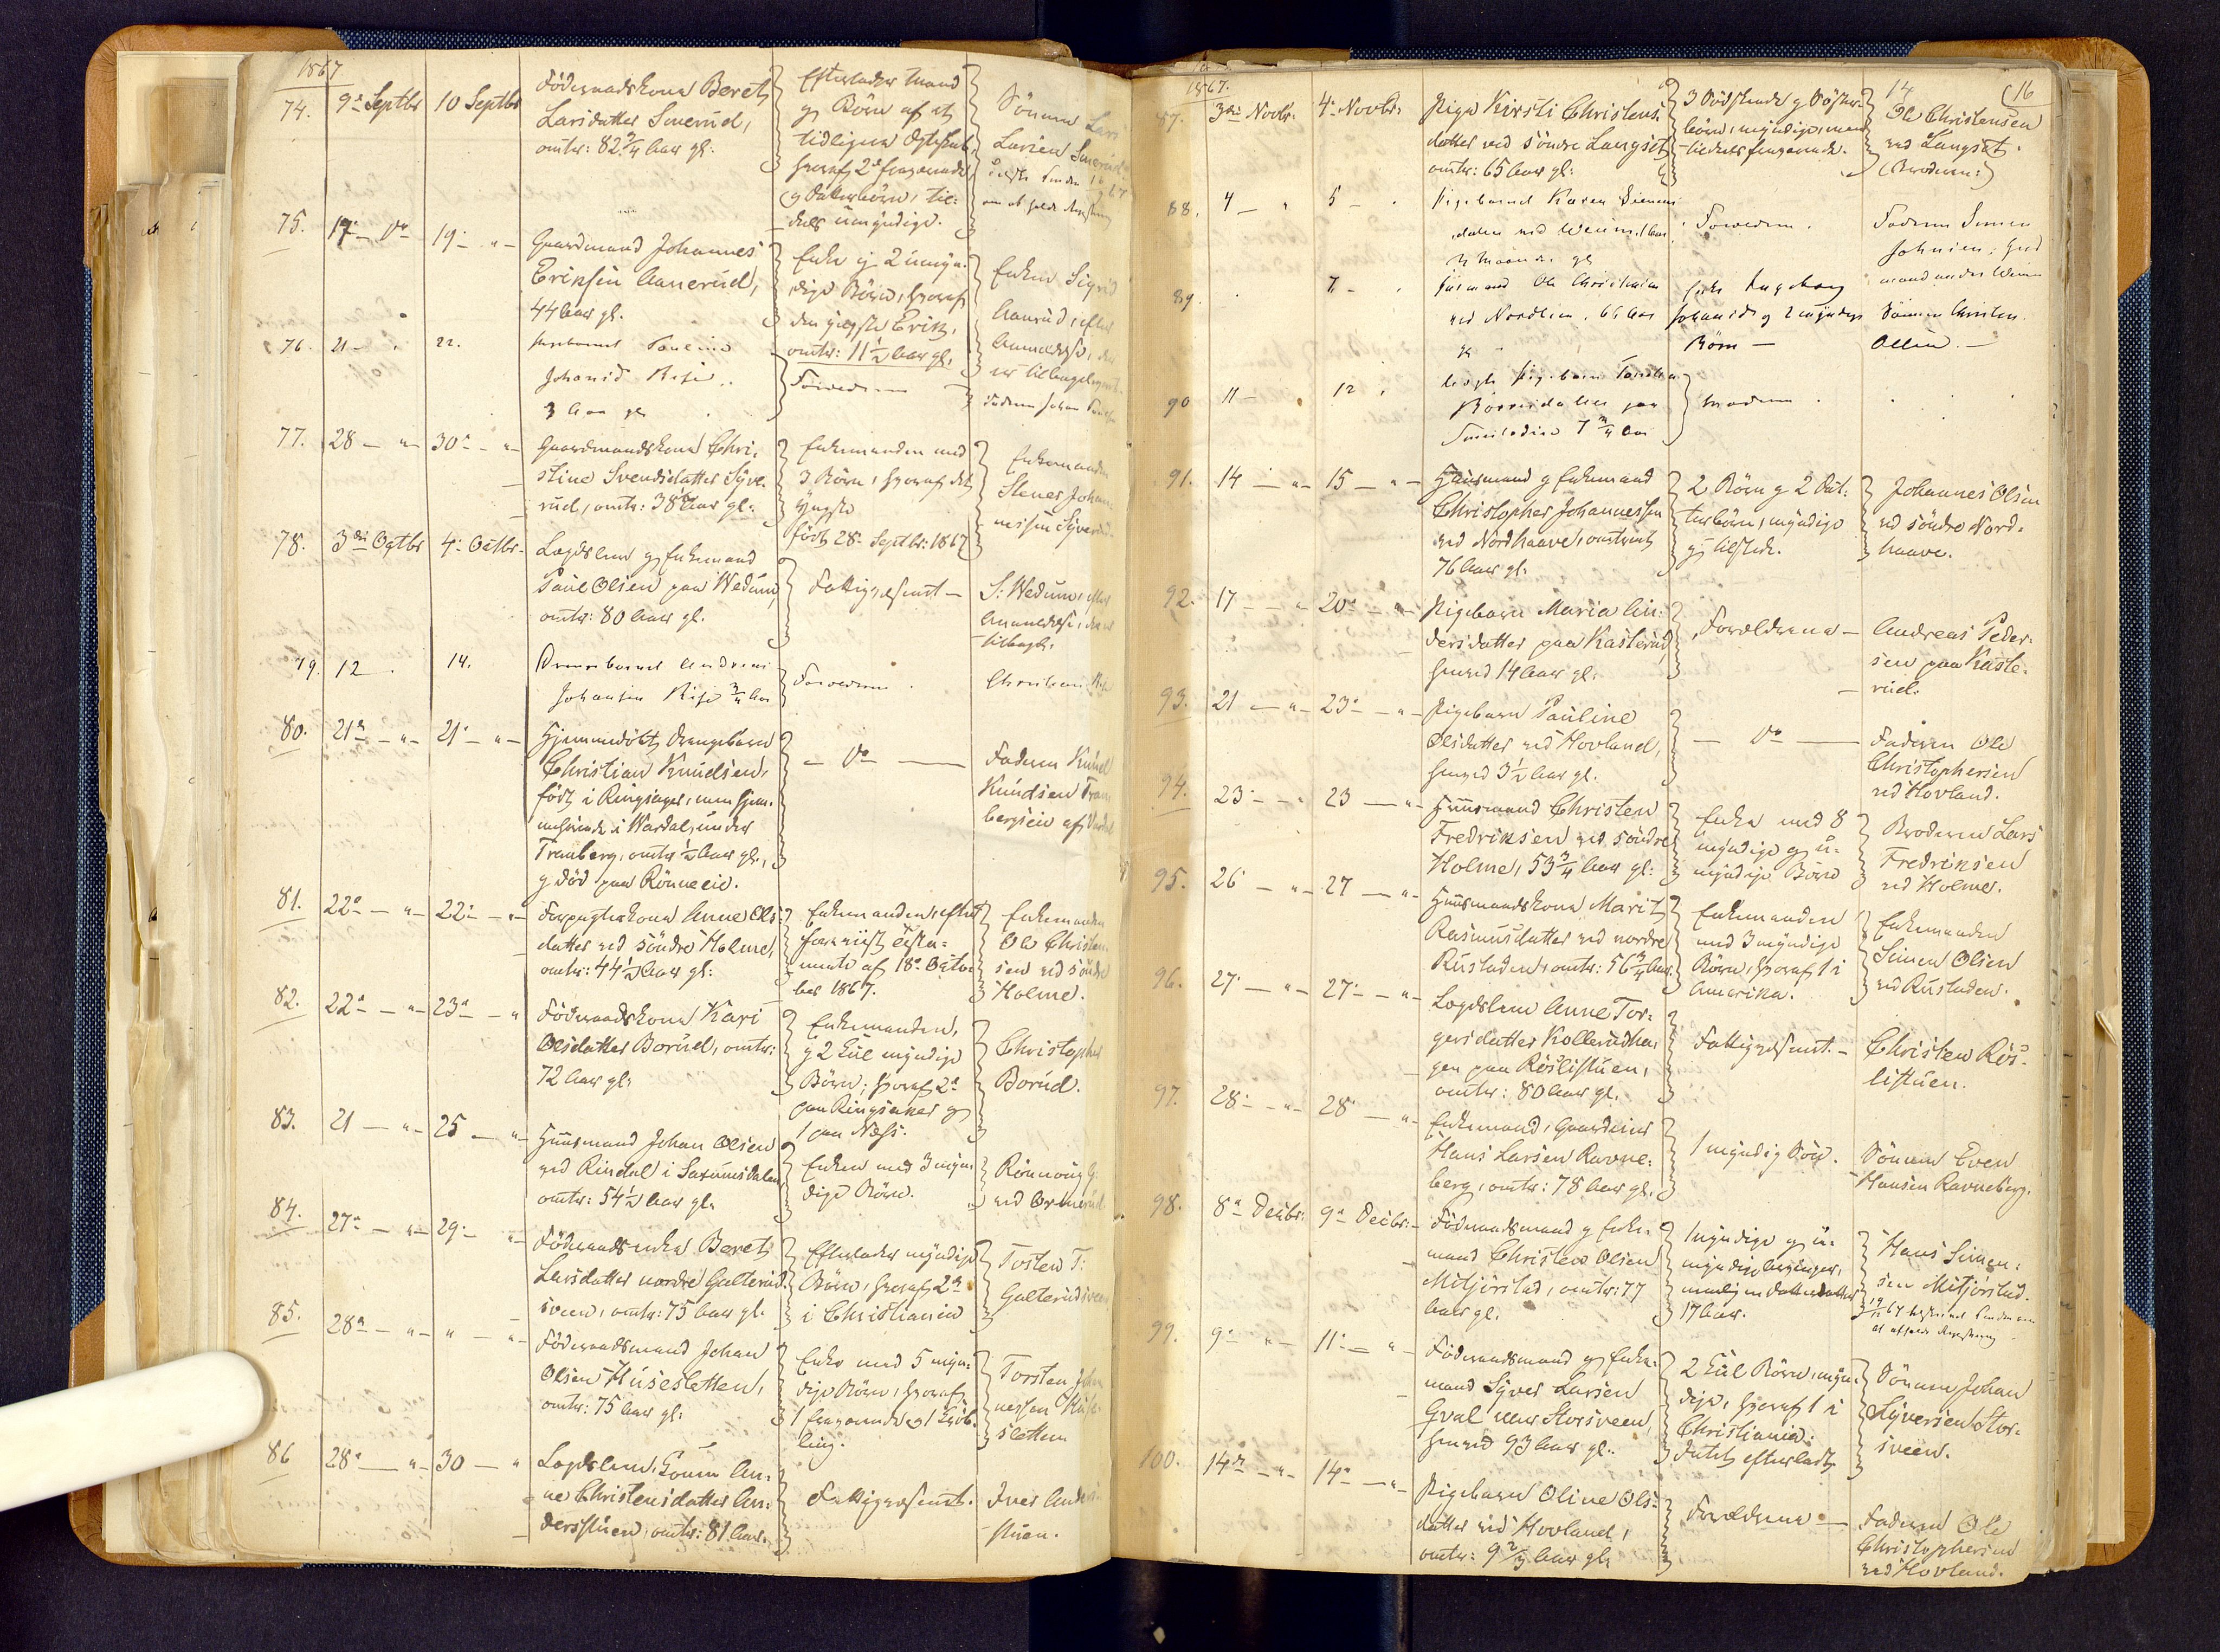 1867
74. 9de Septbr 10 Septbr Föderaadskone Beret
Larsdatter Smerud,
omtr: 82 3/4 Aar gl.
Efterlader Mand
og Börn af et
tidligere Ægteskab,
hvoraf 2de fraværende
og Datterbörn, til:
dels umyndige.
Sönnen Lars
Larsen Smerud
75. 17 – Do 19 – " – Gaardmand Johannes
Eriksen Aanerud,
44 Aar gl.
Enke og 2 umyn:
dige Börn, hvoraf
den yngste Erik,
omtr: 11 1/2 Aar gl.
Enken Sigrid
Aanrud, efter
Anmeldelse, der
er tilbagelagt.
76. 21 – . 22. Pigebarnet Pauline
Johansd Rise
3 Aar gl
Forældrene
Faderen Johan
77. 28 – " – 30 – " – Gaardmandskone Chri:
stine Svendsdatter Syve:
rud, omtr: 38 Aar gl.
Enkemanden med
3 Börn, hvoraf det
yngste
födt 28 Septbr: 1867
Enkemanden
Stener Johan:
nessen Syverud.
78. 3die Octbr 4 Octbr. Lægdslem og Enkemand
Paul Olsen paa Wedum,
omtr: 80 Aar gl.
Fattigvæsenet –
S: Wedum, efter
Anmeldelse, der er
tilbagl.
79. 12 – . 14. Drengebarnet Andreas
Johansen Rise 3/4 Aar
Forældrene .
Christian Rise
80. 21de – " – 21 – " – Hjemmedöbt Drengebarn
Christian Knudsen,
födt i Ringsager, men hjem:
mehörende i Wardal, under
Tranberg, omtr 1/2 Aar gl.,
og död paa Rönneeie.
– Do –
Faderen Knud
Knudsen Tran:
bergseie af Wardal
81. 22de – " – 22 – " – Forpagterkone Anne Ols:
datter ved söndre Holme,
omtr: 44 1/2 Aar gl:
Enkemanden, efter
foreviist Testa:
mente af 18de Octo:
ber 1867.
Enkemanden
Ole Christen:
sen ved söndre
Holme.
82. 22de – " – 23de – " Föderaadskone Kari
Olsdatter Borud, omtr:
72 Aar gl:
Enkemanden,
og 2 Kul myndige
Börn; hvoraf 2de
paa Ringsaker og
1 paa Næss.
Christopher
Borud.
83. 21 – " – 25 – " – Huusmand Johan Olsen
ved Rindal i Saxumsdalen
omtr: 54 1/2 Aar gl.
Enken med 3 myn:
dige Börn.
Rönnoug G.
ved Ormerud
84. 27de – " – 29 – " – Föderaadsenke Beret
Larsdatter nordre Galterud:
sveen, omtr: 75 Aar gl.
Efterlader myndige
Börn, hvoraf 2de
i Christiania
Tosten T:
Galterudsveen
85. 28de – " – " – " – Föderaadsmand Johan
Olsen Husesletten,
omtr: 75 Aar gl.
Enke med 5 myn:
dige Börn, hvoraf
1 fraværende og 1 Tvil:
ling.
Torsten Johan:
nessen Huse:
sletten
86 28de – " – 30 – " Lægdslem,
ne Christensdatter An:
dersstuen, omtr: 81 Aar.
Fattigvæsenet.
Iver Anders:
stuen.
16
14
1867.
87. 3die Novbr. 4 Novbr: Pige Kirsti Christens:
datter ved söndre Langset
omtr: 65 Aar gl:
3 Södskende og Söster:
börn, myndige, men
tildels fraværende.
Ole Christensen
ved Langset.
(Broderen:)
88. 4 – " 5 – . Pigebarnet Karen Simens
datter ved Weum, 1 Aar
Forældrene .
Faderen Simen
Johnsen, Huus
mand under Weum
89. . 7 – . Huusmand Ole Christensen
ved Nordlien, 66 Aar
gl
Enke Ingeborg
Johansd og 2 myndige
Börn –
Sönnen Christen
Olsen. –
90 11 – . 12 . Pigebarn
Moderen .
91. 14 – " – 15 – " – Huusmand og Enkemand
Christopher Johannessen
ved Nordhaave, omtrent
76 Aar gl.
2 Börn og 2 Dat:
terbörn, myndige
og tilstede.
Johannes Olsen
ved söndre Nord:
haave.
92. 17 – – " 20de – " – Pigebarn Maria An:
dersdatter paa Kasterud,
henved 14 Aar gl:
Forældrene –
Andreas Peder:
sen paa Kaste:
rud.
93. 21 – " – 23de – " – Pigebarn Pauline
Olsdatter ved Hovland,
henved 3 1/2 Aar gl.
– Do –
Faderen Ole
Christophersen
ved Hovland.
94. 23 – – " 23 – " – Huusmand Christen
Fredriksen ved söndre
Holme, 53 3/4 Aar gl:
Enke med 8
myndige og u:
myndige Börn
Broderen Lars
Fredriksen
ved Holme.
95. 26 – " – 27 – " – Huusmandskone Marit
Rasmusdatter ved nordre
Rustaden, omtr: 56 3/4 Aar.
Enkemanden
med 3 myndige
Börn, hvoraf 1 i
Amerika.
Enkemanden
Simen Olsen
ved Rustaden.
96. 27 – " – 27 – " – Lægdslem Anne Tor:
gersdatter Kollerudha:
gen paa Röslistuen,
omtr: 80 Aar gl.
Fattigvæsenet. –
Christen Rös:
listuen.
97. 28 – " – 28 – " – Enkemand, Gaardeier
Hans Larsen Ravne:
berg, omtr: 78 Aar gl.
1 myndig Sön.
Sönnen Even
Hansen Ravneberg.
98. 8de Decbr: 9de Decbr: – Föderaadsmand og Enke:
mand Christen Olsen
Mitjörstad, omtr: 77
Aar gl.
1 myndige og u:
myndige Arvinger,
nemlig en Datterdatter
17 Aar.
Hans Simen:
sen Mitjörstad.
99. 9de " – 11 – " – Föderaadsmand og Enke:
mand Syver Larsen
Hval Storsveen,
henved 93 Aar gl.
2 Kul Börn, myn:
dige, hvoraf 1 i
Christiania.
Intet efterladt
Sönnen Johan
Syversen Stor:
sveen.
100. 14de – " – 14de – " – Pigebarn Oline Ols:
datter ved Hovland,
omtr: 9 2/3 Aar gl.
Forældrene –
Faderen Ole
Christophersen
ved Hovland.